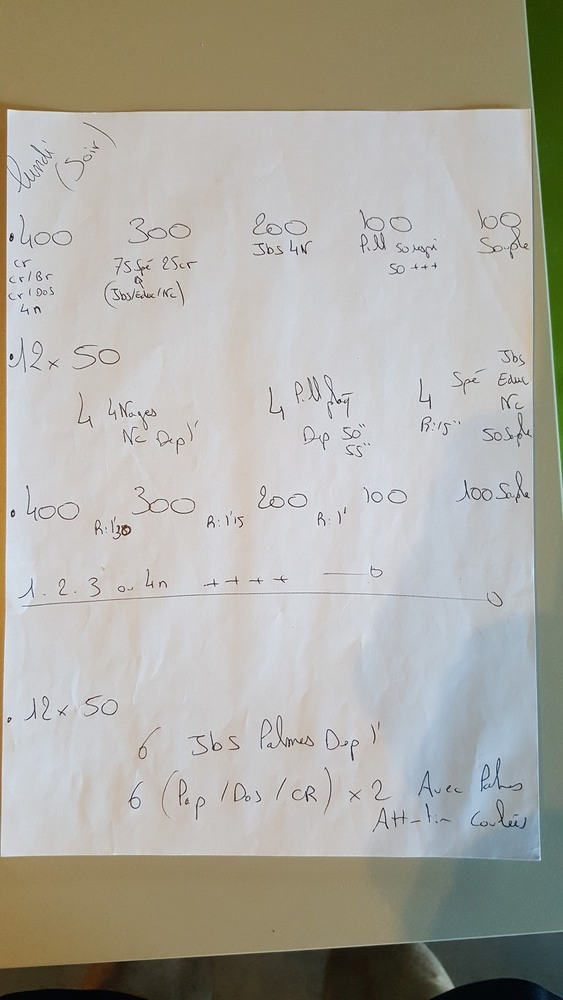 lundi
(Soir)
.400 300 200 100 100
cr
cr/Br
cr/Dos
4n
75 Spé 25cr
(Jbs/Educ/Nc)
Jbs 4N
Pull 50 respi
50 +++
Souple
.12 x 50
4 4Nages
Nc Dep 1'
4 Pull
Dep 50''
55''
4 Spé Jbs
Educ
Nc
R:15''
50 Souple
.400 300 200 100 100 Souple
R:1'30 R:1'15 R:1'
1.2.3 ou 4n ++++
.12 x 50
6 Jbs Palmes Dep 1'
6 (Pap/Dos/CR) x 2 Avec Palmes
Coulées